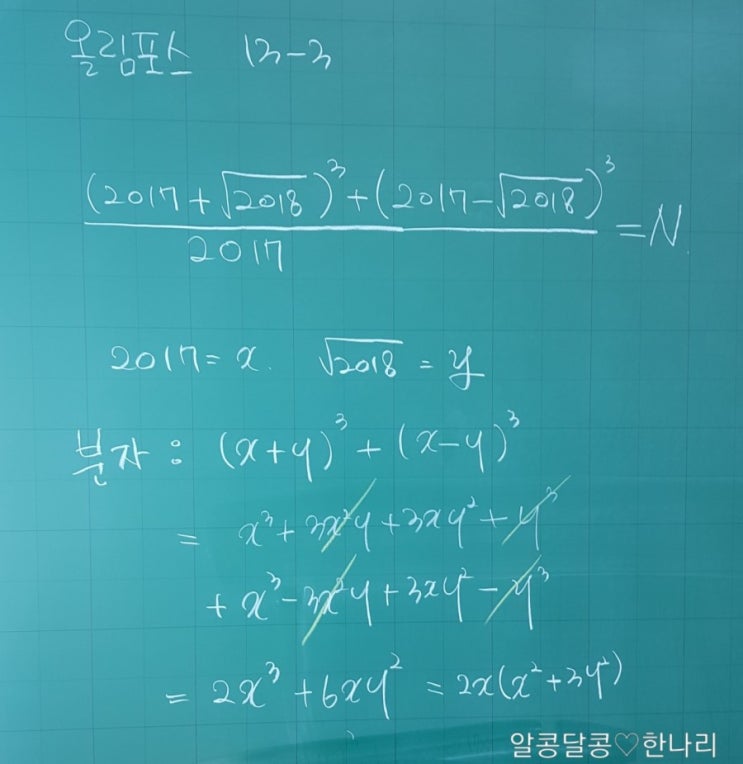 올림포스 13-3
(2017+√2018)³+(2017-√2018)³
2017
=N.
2017=x. √2018=y
분자: (x+y)³+(x-y)³
= x³+3x²y+3xy²+y³
+x³-3x²y+3xy²-y³
= 2x³+6xy² = 2x(x²+3y²)
알콩달콩♡한나리